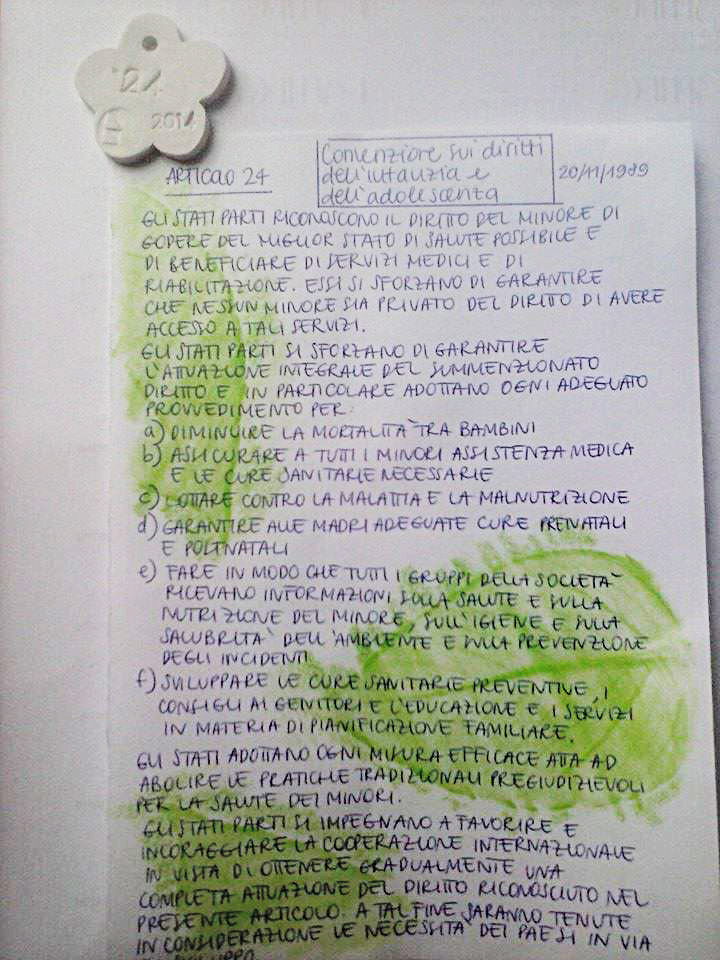 '24
2014
ARTICOLO 24
Convenzione sui diritti
dell'infanzia e
dell'adolescenza
20/11/1989
GLI STATI PARTI RICONOSCONO IL DIRITTO DEL MINORE DI
GODERE DEL MIGLIOR STATO DI SALUTE POSSIBILE E
DI BENEFICIARE DI SERVIZI MEDICI E DI
RIABILITAZIONE. ESSI SI SFORZANO DI GARANTIRE
CHE NESSUN MINORE SIA PRIVATO DEL DIRITTO DI AVERE
ACCESSO A TALI SERVIZI.
GLI STATI PARTI SI SFORZANO DI GARANTIRE
L'ATTUAZIONE INTEGRALE DEL SUMMENZIONATO
DIRITTO E IN PARTICOLARE ADOTTANO OGNI ADEGUATO
PROVVEDIMENTO PER:
a) DIMINUIRE LA MORTALITÀ TRA BAMBINI
b) ASSICURARE A TUTTI I MINORI ASSISTENZA MEDICA
E LE CURE SANITARIE NECESSARIE
c) LOTTARE CONTRO LA MALATTIA E LA MALNUTRIZIONE
d) GARANTIRE ALLE MADRI ADEGUATE CURE PRENATALI
E POSTNATALI
e) FARE IN MODO CHE TUTTI I GRUPPI DELLA SOCIETÀ
RICEVANO INFORMAZIONI SULLA SALUTE E SULLA
NUTRIZIONE DEL MINORE, SULL'IGIENE E SULLA
SALUBRITÀ DELL'AMBIENTE E SULLA PREVENZIONE
DEGLI INCIDENTI
f) SVILUPPARE LE CURE SANITARIE PREVENTIVE, I
CONSIGLI AI GENITORI E L'EDUCAZIONE E I SERVIZI
IN MATERIA DI PIANIFICAZIONE FAMILIARE.
GLI STATI ADOTTANO OGNI MISURA EFFICACE ATTA AD
ABOLIRE LE PRATICHE TRADIZIONALI PREGIUDIZIEVOLI
PER LA SALUTE DEI MINORI.
GLI STATI PARTI SI IMPEGNANO A FAVORIRE E
INCORAGGIARE LA COOPERAZIONE INTERNAZIONALE
IN VISTA DI OTTENERE GRADUALMENTE UNA
COMPLETA ATTUAZIONE DEL DIRITTO RICONOSCIUTO NEL
PRESENTE ARTICOLO. A TAL FINE SARANNO TENUTE
IN CONSIDERAZIONE LE NECESSITÀ DEI PAESI IN VIA